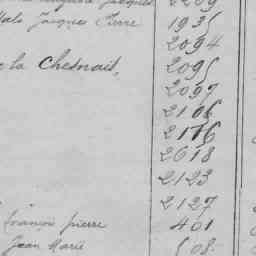 Jacques 2209
Jacques Pierre 1935
2094
de la Chesnais, 2095
2097
2106
2176
2618
2123
2127
François pierre 401
Jean Marie 508